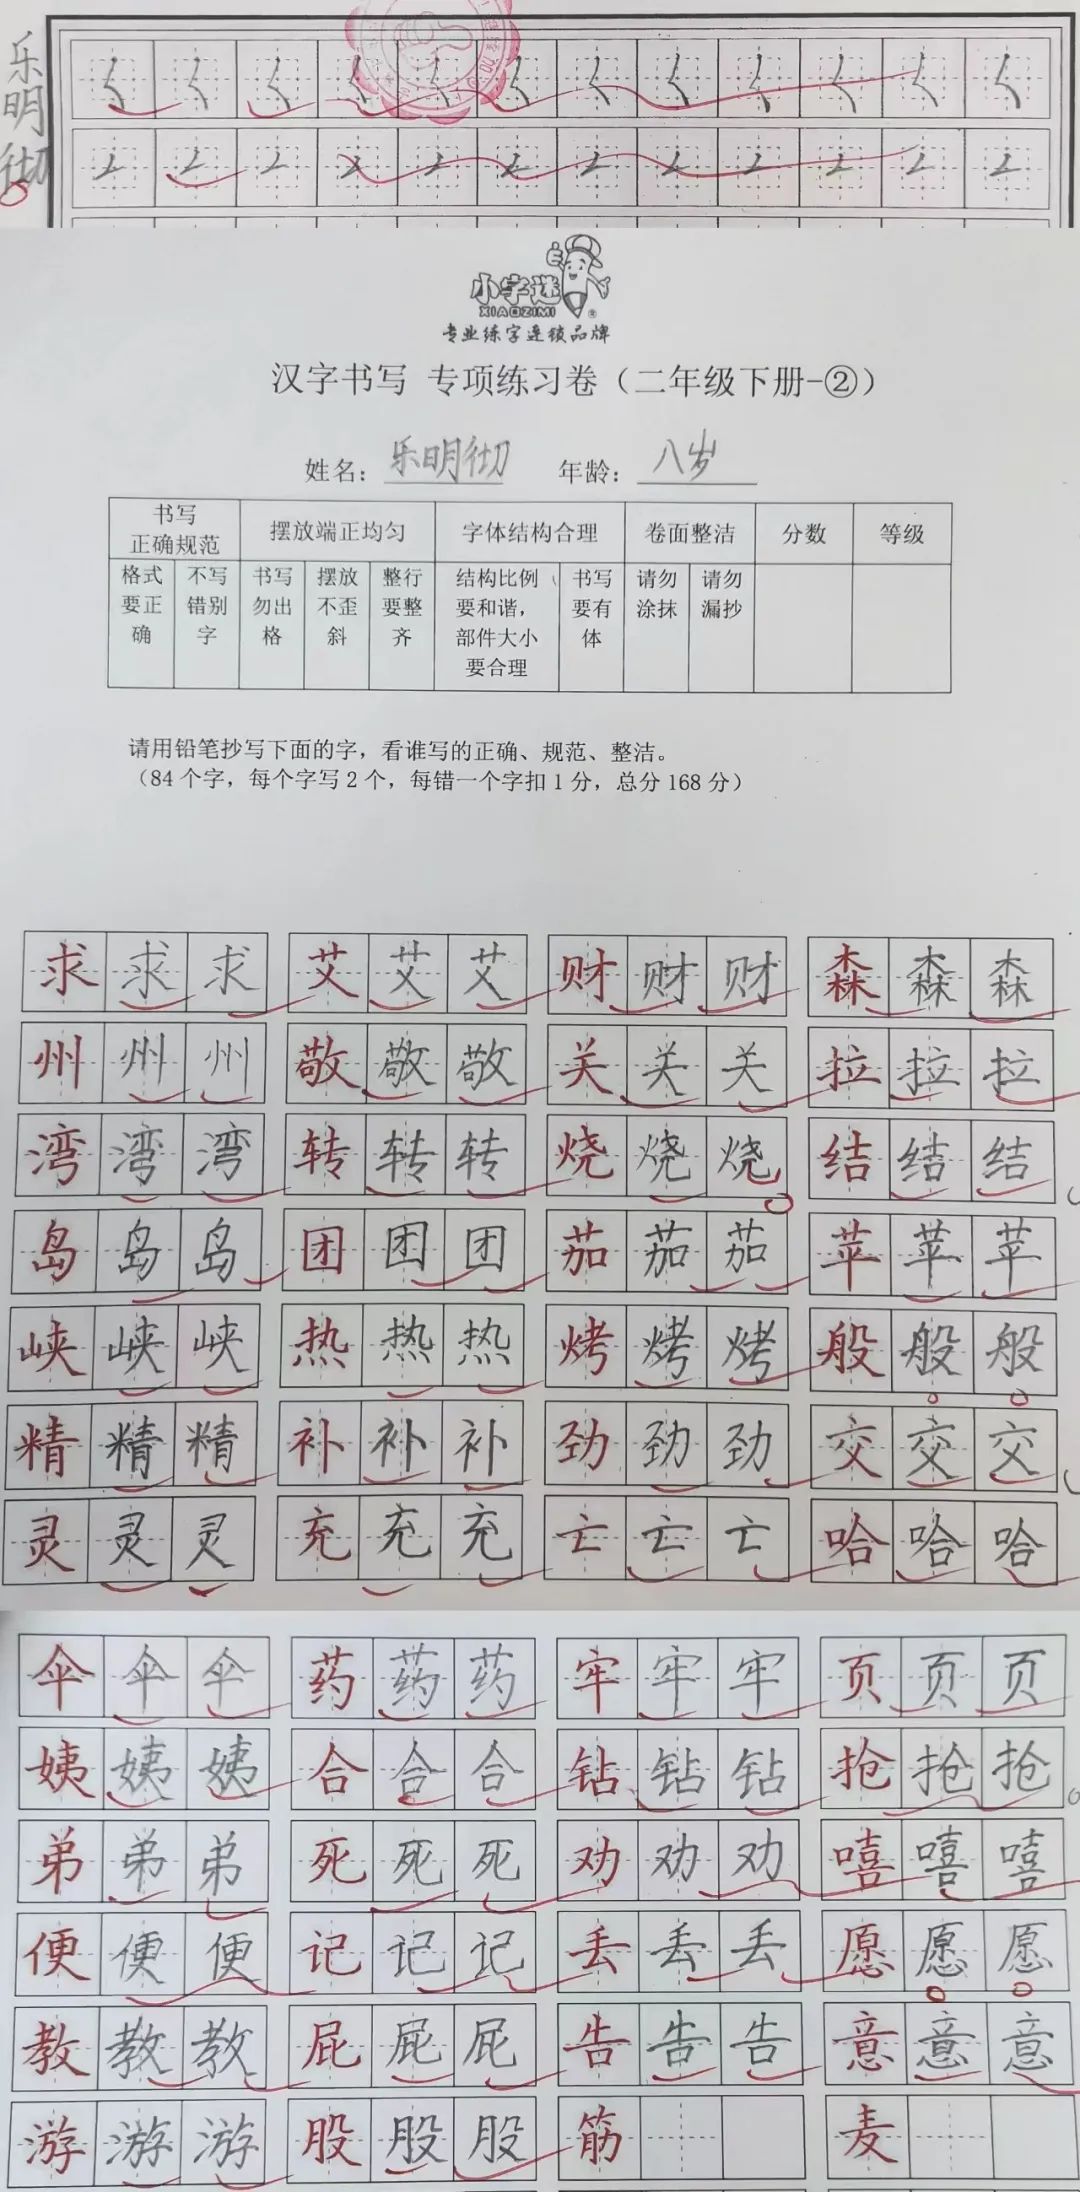 乐明彻
小字迷
XIAOZIMI
专业练字连锁品牌
汉字书写 专项练习卷（二年级下册-②）
姓名：乐明彻 年龄：八岁
书写正确规范 摆放端正均匀 字体结构合理 卷面整洁 分数 等级
格式要正确 不写错别字 书写勿出格 摆放不歪斜 整行要整齐 结构比例要和谐，部件大小要合理 书写要有体 请勿涂抹 请勿漏抄
请用铅笔抄写下面的字，看谁写的正确、规范、整洁。
（84个字，每个字写2个，每错一个字扣1分，总分168分）
求求求 艾艾艾 财财财 森森森
州州州 敬敬敬 关关关 拉拉拉
湾湾湾 转转转 烧烧烧 结结结
岛岛岛 团团团 茄茄茄 苹苹苹
峡峡峡 热热热 烤烤烤 般般般
精精精 补补补 劲劲劲 交交交
灵灵灵 充充充 亡亡亡 哈哈哈
伞伞伞 药药药 牢牢牢 页页页
姨姨姨 合合合 钻钻钻 抢抢抢
弟弟弟 死死死 劝劝劝 嘻嘻嘻
便便便 记记记 丢丢丢 愿愿愿
教教教 屁屁屁 告告告 意意意
游游游 股股股 筋 麦